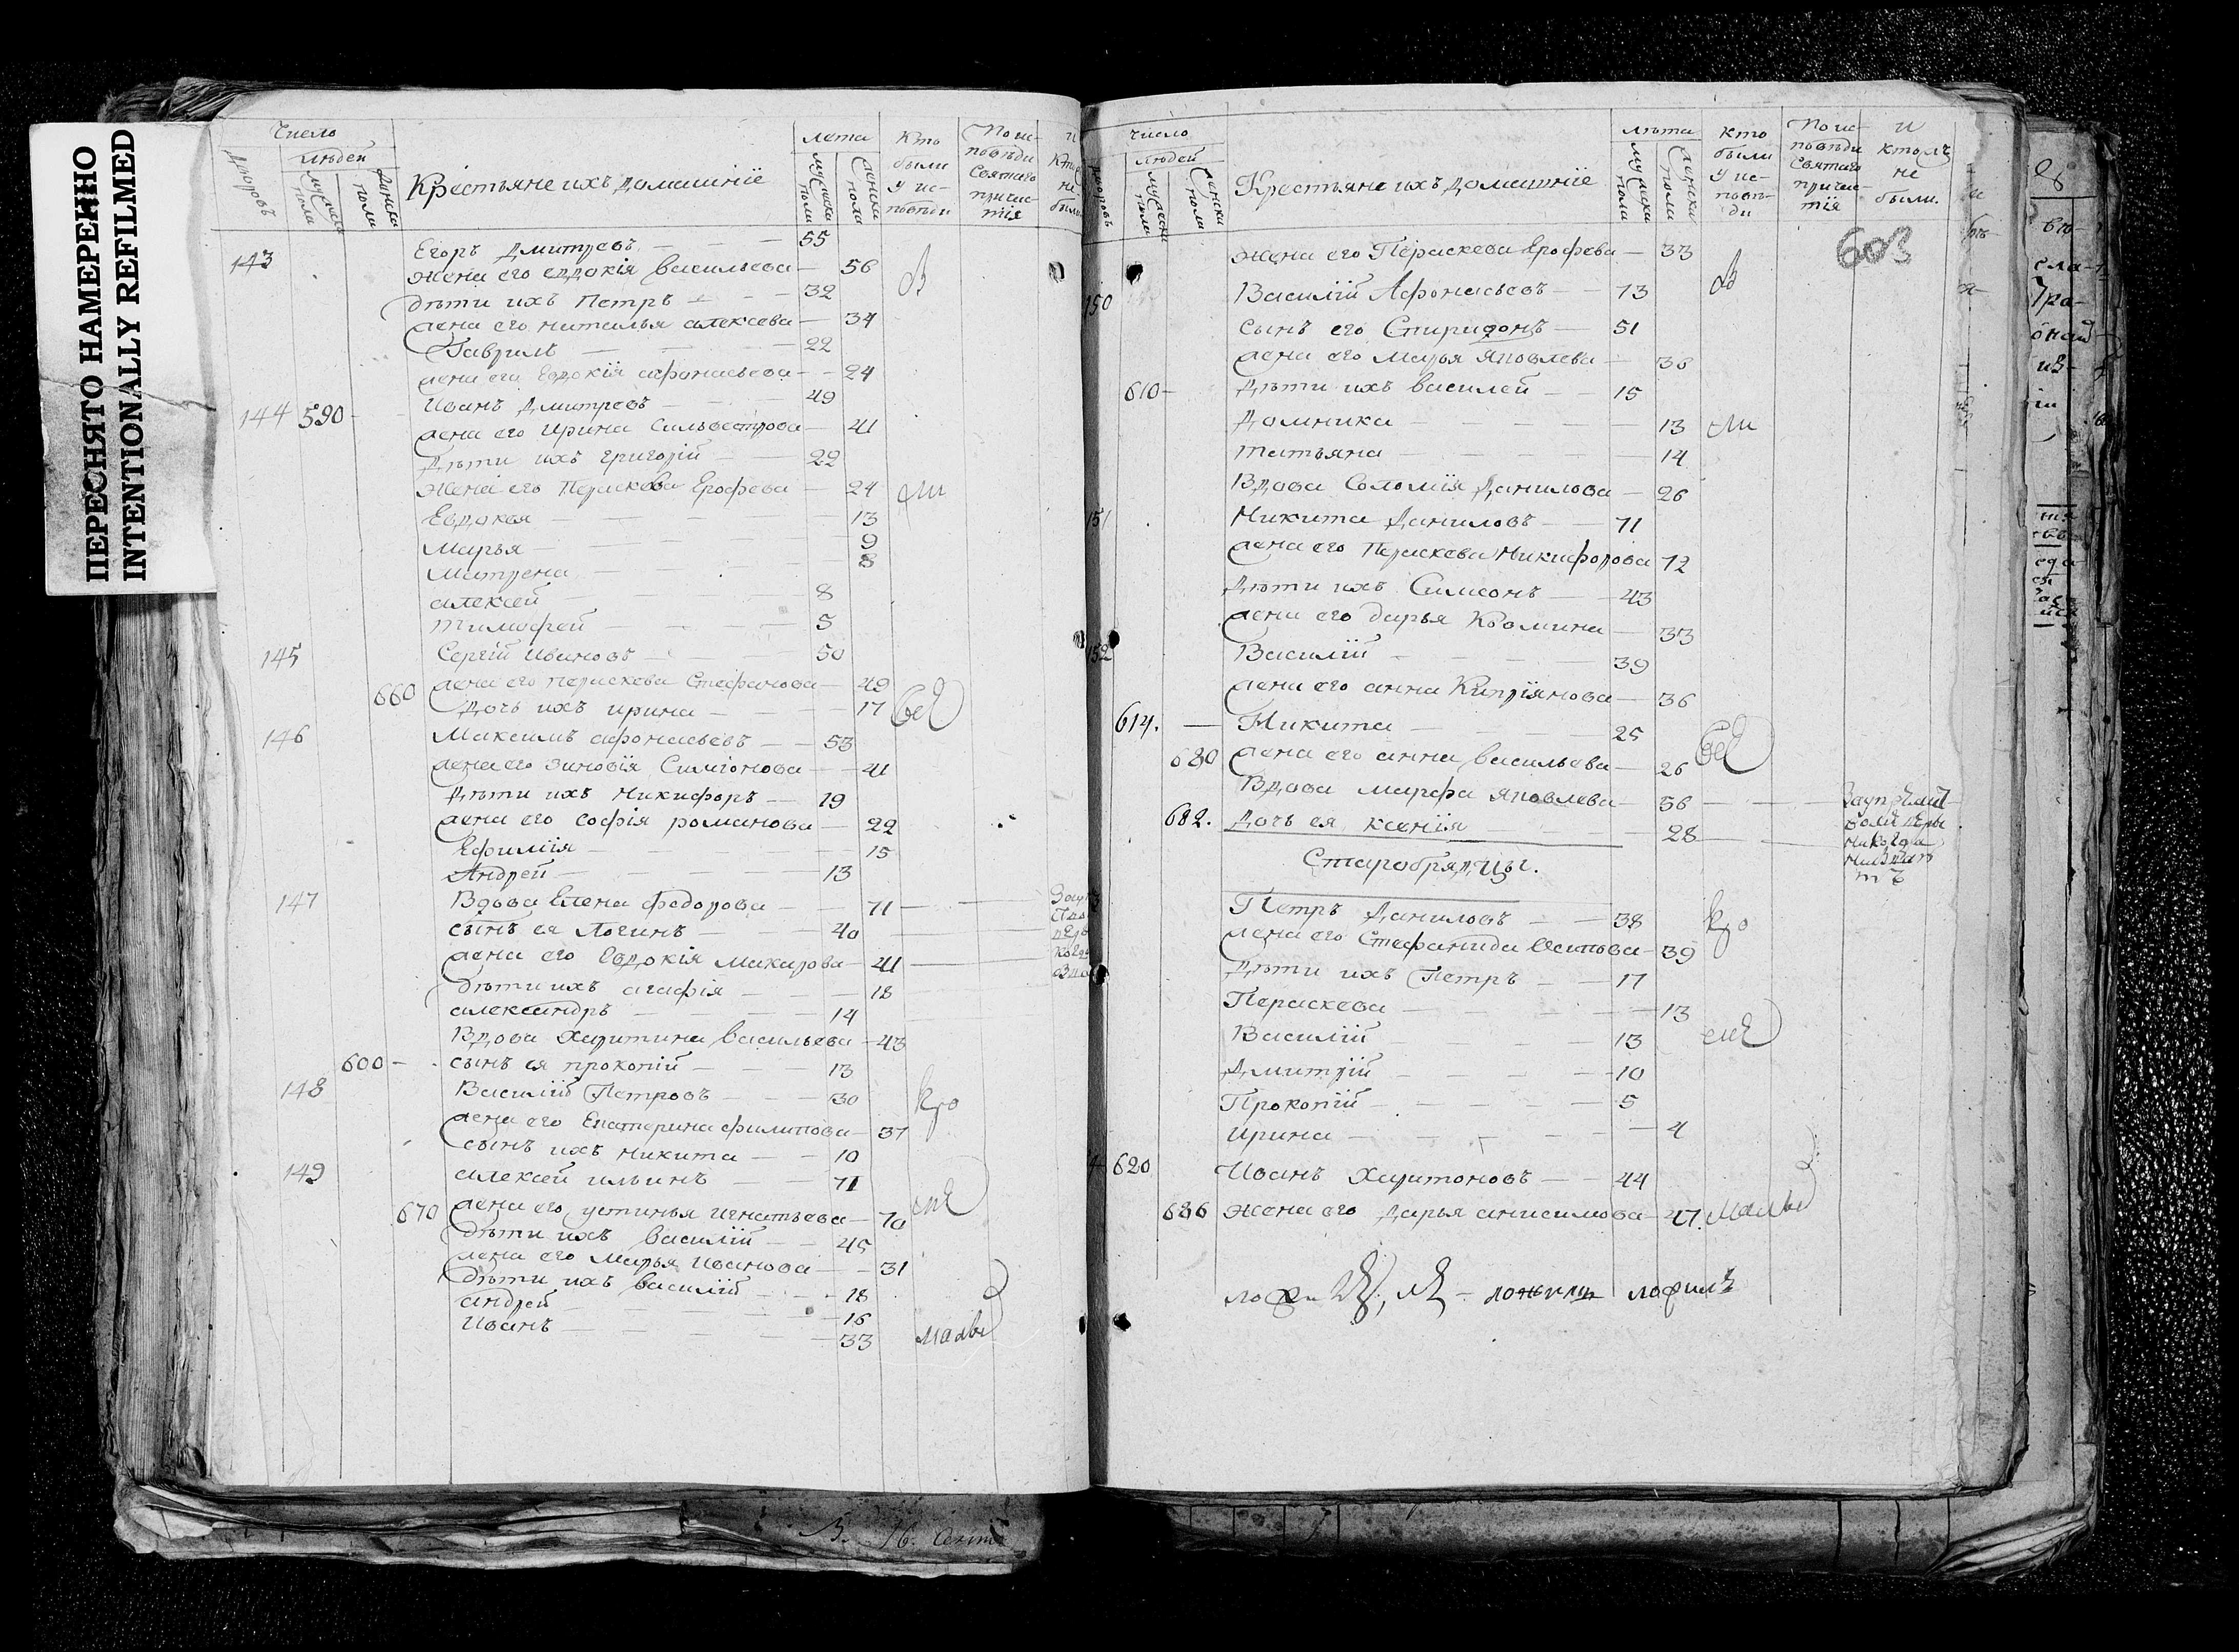 ПЕРЕСНЯТО НАМЕРЕННО
INTENTIONALLY REFILMED
Число
Дворовъ
людей
мужеска пола
женска пола
Крестьяне ихъ домашніе
лета
мужеска пола
женска пола
Кто были у исповеди
По исповѣди Святаго причастія
143 Егоръ Дмитревъ 55
Жена его евдокія васильева 56
дѣти ихъ Петръ 32
жена его наталья алексева 34
Гаврилъ 22
жена его Евдокія афонасьева 24
144 590 Иванъ Дмитревъ 49
жена его Ирина Сильвестрова 41
Дѣти ихъ григорій 22
Жена его Пераскева Ерофева 24
Евдокья 13
Марья 9
Матрена 8
алексей 8
тимофей 5
145 Сергій Ивановъ 50
660 жена его пераскева Стефанова 49
Дочь ихъ ирина 17
146 Максимъ афонасьевъ 53
жена его Зиновія Симіонова 41
Дѣти ихъ Никифоръ 19
жена его софія романова 22
Ефимія 15
Андрей 13
147 Вдова Елена федорова 71
сынъ ея Логинъ 40
жена его Евдокія макарова 41
дѣти ихъ агафія 18
александръ 14
Вдова Харитина васильева 43
600 сынъ ея прокопій 13
148 Василій Петровъ 30
жена его Екатерина филипова 37
сынъ ихъ никита 10
149 алексей ильинъ 71
670 жена его устинья игнатьева 70
дѣти ихъ василій 45
жена его Марья Иванова 31
дѣти ихъ василій 18
андрей 16
Иванъ 33
число
Дворовъ
людей
мужеска пола
женска пола
Крестьяне ихъ домашніе
лѣта
мужеска пола
женска пола
кто были у исповѣди
По исповѣди Святаго причастія
и
не были.
603
Жена его Пераскева Ерофева 33
150 Василій Афонасьевъ 73
сынъ его Спиридонъ 51
жена его Марья Яковлева 38
610 Дѣти ихъ василей 15
Домника 13
татьяна 14
Вдова Соломія Данилова 26
151 Никита Даниловъ 71
жена его Пераскева Никифорова 72
Дѣти ихъ Симеонъ 43
жена его дарья Козмина 33
152 Василій 39
жена его анна Кипріянова 36
614. Никита 25
680 жена его анна васильева 26
Вдова марфа яковлева 56
682. Дочь ея ксенія 28
Старобрядцы.
Петръ Даниловъ 38
жена его Стефанида Осипова 39
Дѣти ихъ Петръ 17
Пераскева 13
Василій 13
Дмитрій 10
Прокопій 5
Ирина 4
620 Иванъ Харитоновъ 44
686 Жена его Дарья анисимова 47.